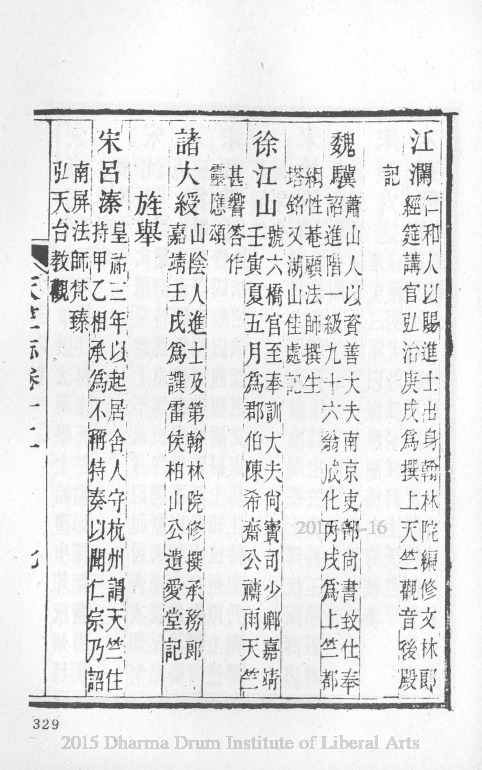 江瀾仁和人以賜進士出身翰林院編修文林郎
經筵講官弘治庚戌爲撰上天竺觀音後殿
記
魏驥蕭山人以資善大夫南京吏部尚書致仕奉
詔進階一級九十六翁成化丙戌爲上竺都
綱性菴顧法師撰生
塔銘又湖山佳處記
徐江山號六橋官至奉訓大夫尚寶司少卿嘉靖
壬寅夏五月爲郡伯陳希齋公禱雨天竺
甚響答作
靈應頌
諸大綬山陰人進士及第翰林院修撰承務郎
嘉靖壬戌爲譔雷侯柏山公遺愛堂記
旌舉
宋呂溱皇祐三年以起居舍人守杭州謂天竺住
持甲乙相承爲不稱特奏以聞仁宗乃詔
南屏法師梵臻
弘天台教觀
天竺志卷
九
2015-04-16
329
2015 Dharma Drum Institute of Liberal Arts